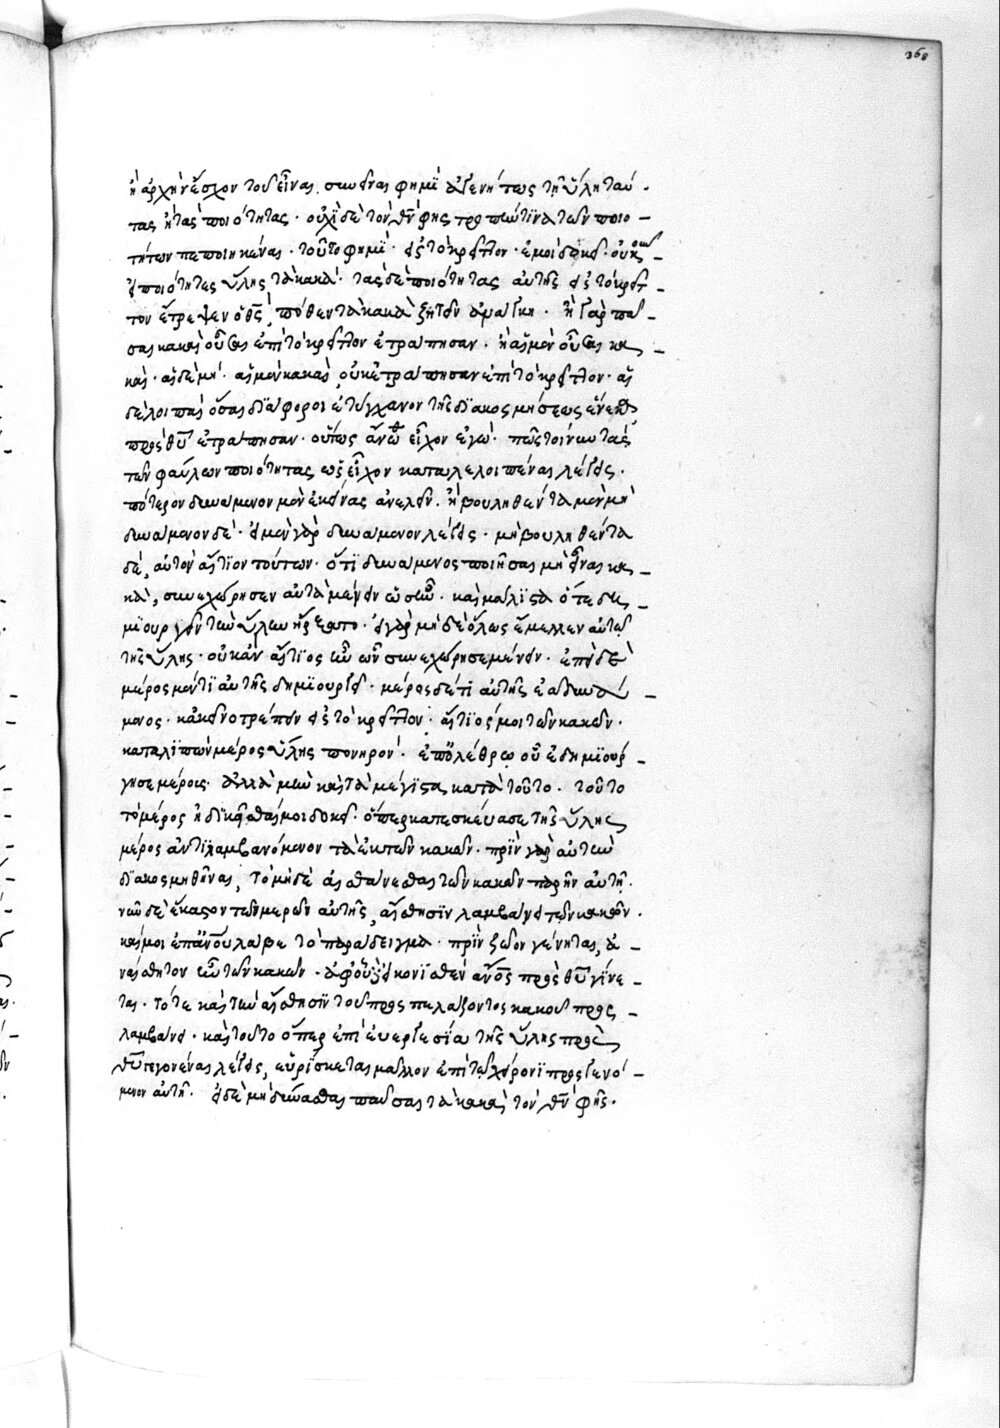 ἢ ἀρχὴν ἔσχον τοῦ εἶναι. συνεῖναι φημὶ ἀγενήτως τῇ ὕλῃ ταύ-
τας τὰς ποιότητας. οὐχὶ δὲ τὸν θν φῂς τροπήν τινα τῶν ποιο-
τήτων πεποιηκέναι. τοῦτο φημί. εἰς τὸ κρεῖττον. ἐμοὶ δοκεῖ. οὐκοῦν
εἰ ποιότητες ὕλης τὰ κακά. τὰς δὲ ποιότητας αὐτῆς εἰς τὸ κρεῖτ-
τον ἔτρεψεν ὁ θς, πόθεν τὰ κακὰ ζητεῖν ἀνάγκη. ἢ γὰρ πᾶ-
σαι κακαὶ οὖσαι ἐπὶ τὸ κρεῖττον ἐτράπησαν. ἢ αἱ μὲν οὖσαι κα-
καί. αἱ δὲ μή. αἱ μὲν κακαὶ οὐκ ἐτράπησαν ἐπὶ τὸ κρεῖττον. αἱ
δὲ λοιπαὶ ὅσαι διάφοροι ἐτύγχανον τῆς διακοσμήσεως ἕνεκα
πρὸς θυ ἐτράπησαν. οὕτως ἄνωθεν εἶχον ἐγώ. πῶς τοίνυν τὰς
τῶν φαύλων ποιότητας ὡς εἶχον καταλελοιπέναι λέγεις.
πότερον δυνάμενον μὲν ἐκείνας ἀνελεῖν. ἢ βουληθέντα μὲν μὴ
δυνάμενον δέ. εἰ μὲν γὰρ δυνάμενον λέγεις. μὴ βουληθέντα
δέ, αὐτὸν αἴτιον τούτων. ὅτι δυνάμενος ποιῆσαι μὴ εἶναι κα-
κά, συνεχώρησεν αὐτὰ μένειν ὡς ἦν. καὶ μάλιστα ὅτε δη-
μιουργεῖν τὴν ὕλην ἤρξατο. εἰ γὰρ μηδὲ ὅλως ἔμελλεν αὐτῷ
τῆς ὕλης. οὐκ ἂν αἴτιος ἦν ὧν συνεχώρησε μένειν. ἐπεὶ δὲ
μέρος μέν τι αὐτῆς δημιουργεῖ. μέρος δέ τι αὐτῆς ἐᾷ δυνά-
μενος. κἀκεῖνο τρέπειν εἰς τὸ κρεῖττον. αἴτιός μοι τῶν κακῶν.
καταλιπὼν μέρος ὕλης πονηρόν. ἐπ' ὀλέθρῳ οὗ ἐδημιούρ-
γησε μέρους. ἀλλὰ μὴν καὶ τὰ μέγιστα κατὰ τοῦτο. τοῦτο
τὸ μέρος ἠδικῆσθαί μοι δοκεῖ. ὅπερ κατεσκεύασε τῆς ὕλης
μέρος ἀντιλαμβανόμενον τὰ ἐκ τῶν κακῶν. πρὶν γὰρ αὐτὴν
διακοσμηθῆναι, τὸ μηδὲ αἰσθάνεσθαι τῶν κακῶν παρῆν αὐτῇ.
νῦν δὲ ἕκαστον τῶν μερῶν αὐτῆς, αἴσθησιν λαμβάνει τῶν κακῶν.
καί μοι ἐπ' ἀνου λάβε τὸ παράδειγμα. πρὶν ζῷον γένηται, ἀ-
ναίσθητον ἦν τῶν κακῶν. ἀφ' οὗ δὲ εἰκονισθὲν ἀνος πρὸς θυ γίνε-
ται. τότε καὶ τὴν αἴσθησιν τοῦ προσπελάζοντος κακοῦ προσ-
λαμβάνει. καὶ τοῦτο ὅπερ ἐπὶ εὐεργεσίᾳ τῆς ὕλης πρὸς
θυ γεγονέναι λέγεις, εὑρίσκεται μᾶλλον ἐπὶ τῷ χείρονι προσγενό-
μενον αὐτῇ. εἰ δὲ μὴ δύνασθαι παῦσαι τὰ κακὰ τὸν θν φῂς.